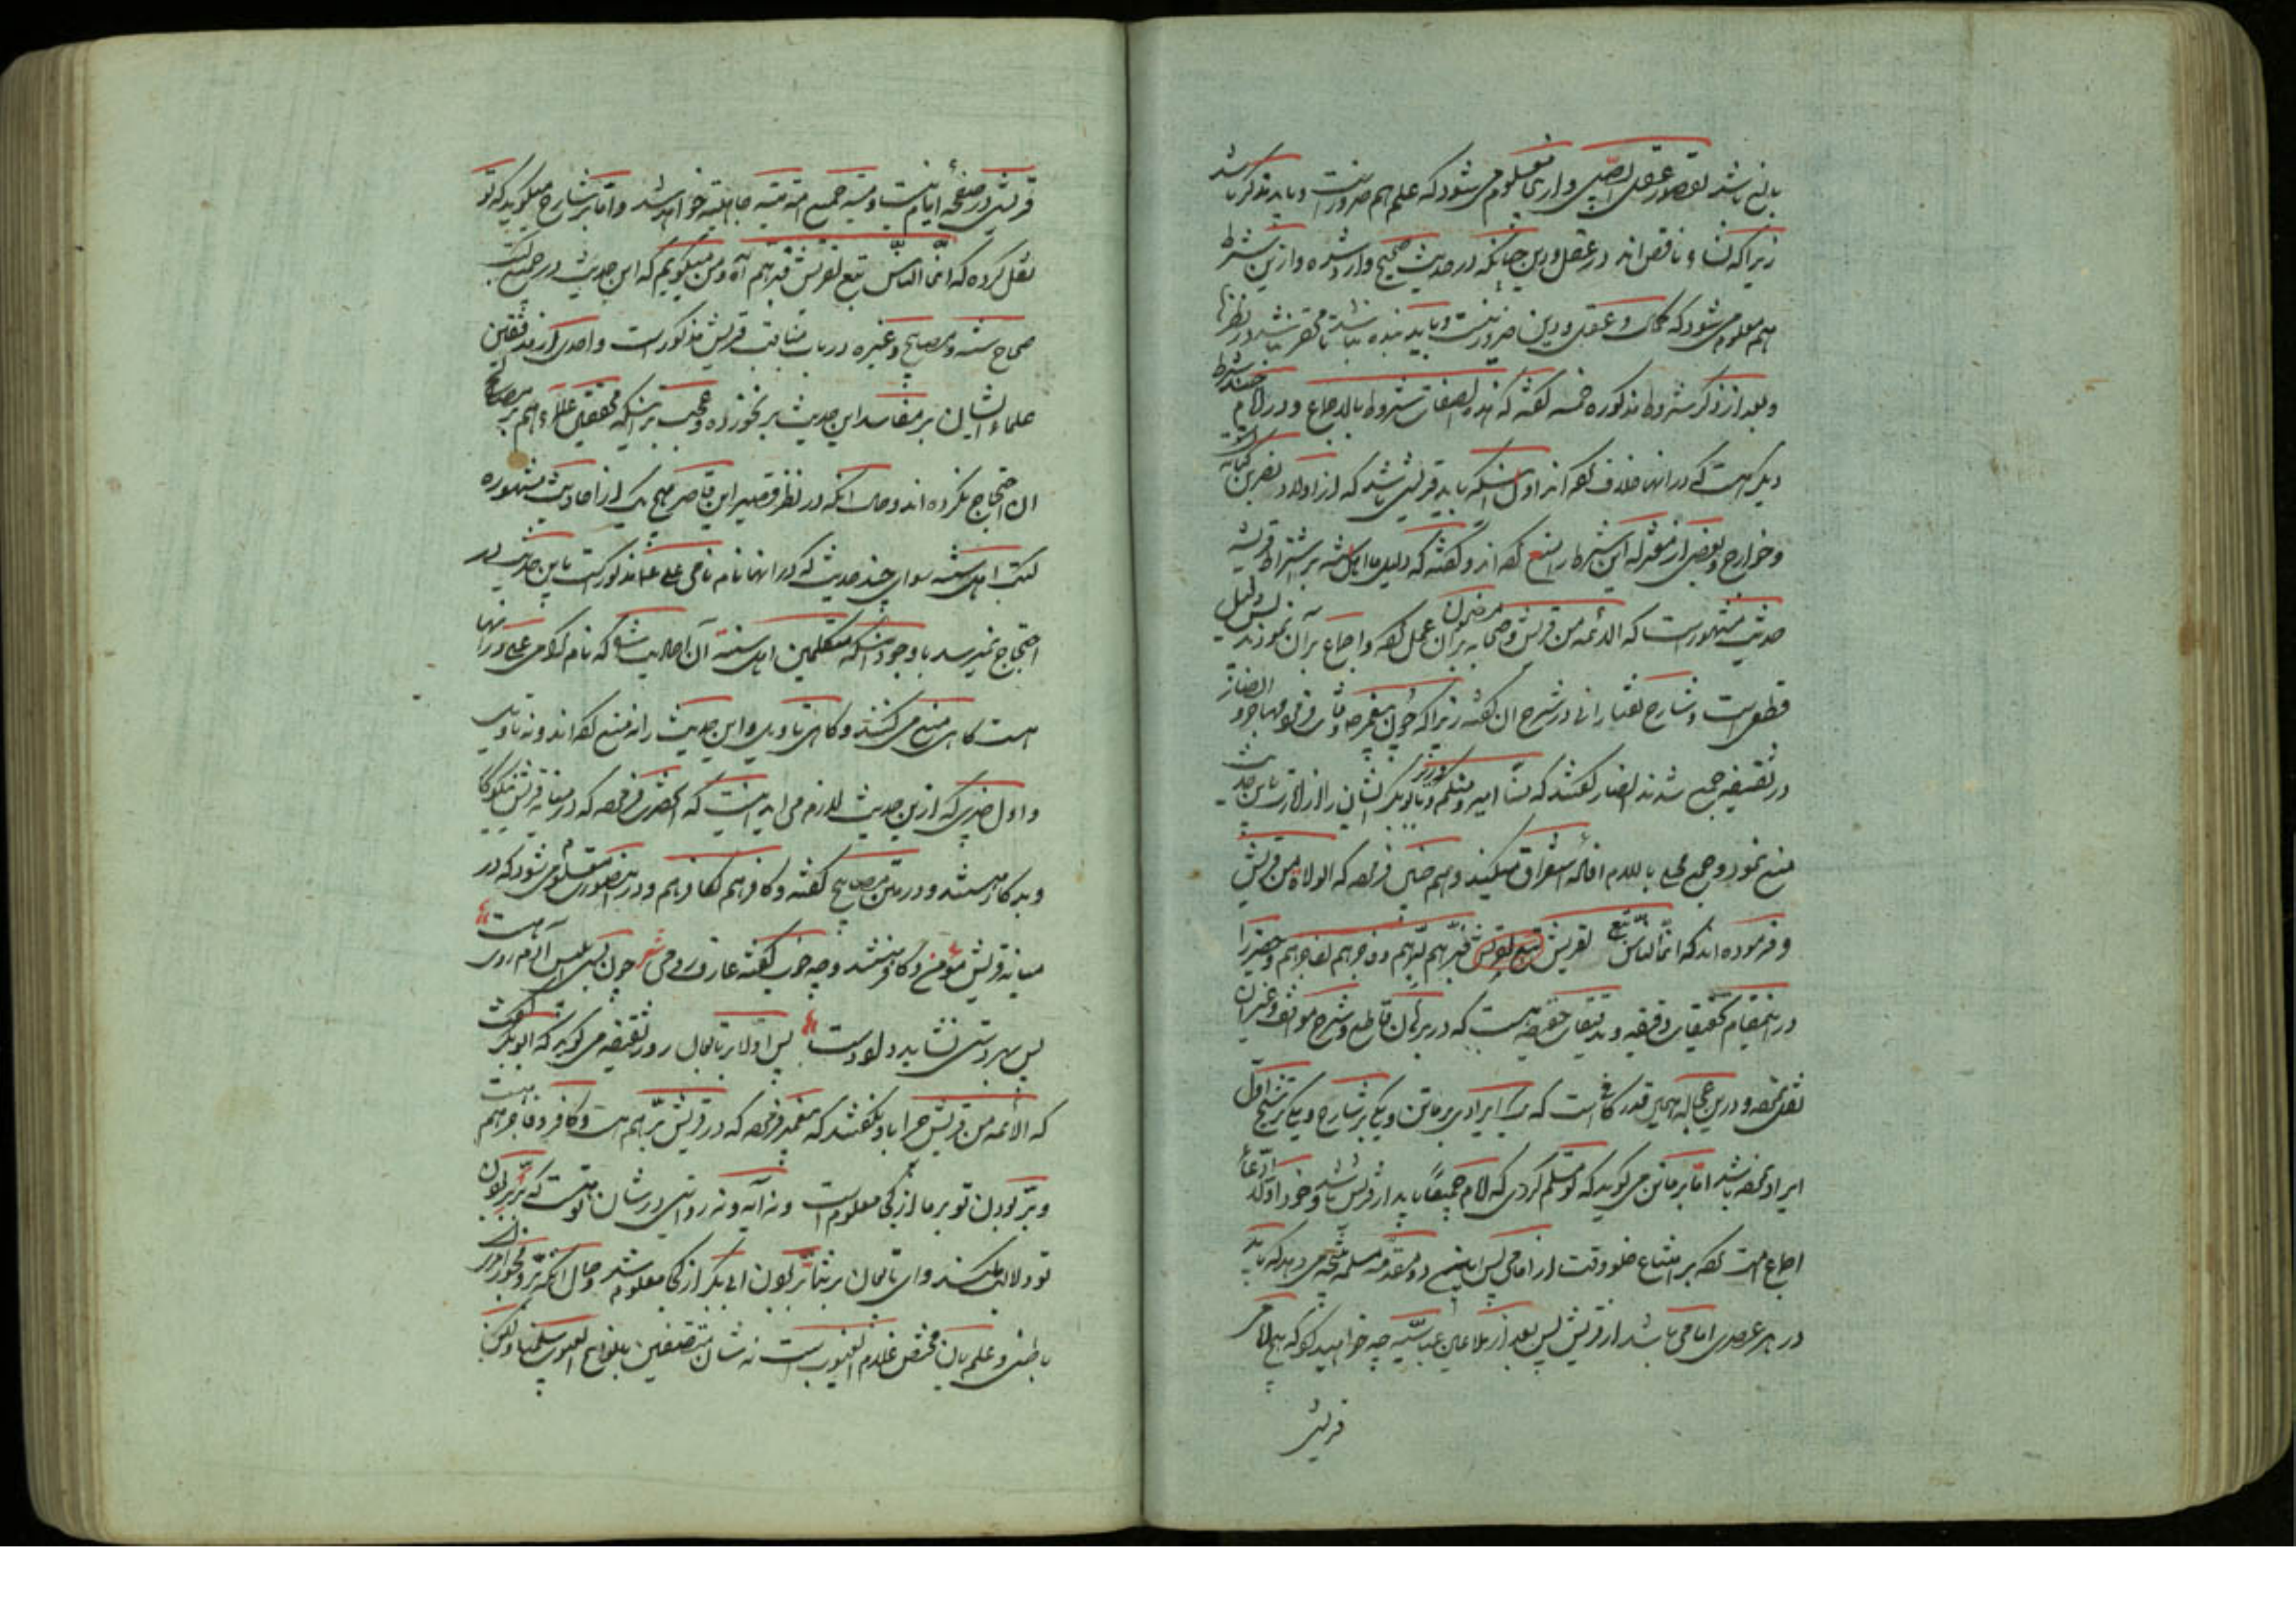 بالغ باشد لقصور عقل الصبی و ازینجا معلوم می شود که علم هم ضرورست و باید مذکر باشد
زیرا که نساء ناقص اند در عقل و دین چنانکه در حدیث صحیح وارد شده و ازین شرط
هم معلوم می شود که کمال عقل و دین ضرورست و باید بنده نباشد تا محقر نباشد در نظرها
و بعد از ذکر شروط مذکوره خمسه گفته که هذه الصفات شروط بالاجماع و در امام چند شرط
دیگر است که در انها خلاف کرده اند اول اینکه باید قریشی باشد که از اولاد نضر بن کنانه است
و خوارج و بعضی از معتزله این شرط را منع کرده اند و گفته که دلیل ما اهل سنه بر اشتراط قرشیه
حدیث مشهورست که الائمه من قریش و صحابه بر مضمون آن عمل کرده و اجماع بر آن نمودند پس دلیل
قطعی است و شارح تفتازانی در شرح آن گفته زیرا که چون پیغمبر وفات فرمود مهاجر و انصار
در سقیفه جمع شدند انصار گفتند که منا امیر و منکم امیر و ابوبکر ایشان را باین حدیث
منع نمود و جمع محلی باللام افاده استغراق میکند و هم چنین فرموده که الولاة من قریش
و فرموده اند که انما الناس تبع لقریش تبع لقریش فبرهم لبرهم و فاجرهم لفاجرهم و حقیر را
در اینمقام تحقیقات دقیقه و تدقیقات حقیقه هست که در برهان قاطع و شرح مواقف و غیر آن
نقد نموده و درین عجاله همین قدر کافی است که یک ایرادی بر ماتن و یکی بر شارح و یکی بر شیخ اول
ایراد نموده باشد اما بر ماتن می گوید که تو مسلم کردی که امام جمیعا باید از قریش باشد و خود ادعاء
اجماع امت کرده بر امتناع خلو وقت از امامی پس این دو مقدمه مسلمه نتیجه می دهد که باید
در هر عصری امامی باشد از قریش پس بعد از خلفای عباسیه چه خواهید کرد که هیچ امامی
قریشی
قریشی در صفحه ایام نیست و میته جمیع امت میته جاهلیه خواهد شد و اما بر شارح میگوید که تو
نقل کرده که انما الناس تبع لقریش فبرهم آه و من میگویم که این حدیث در جمیع کتب
صحاح سته و مصابیح و غیره در باب مناقب قریش مذکور است و احدی از مدققین
علماء ایشان بر مفاسد این حدیث برنخورده و عجب تر اینکه محققین علماء هم بر مصالح
ان احتجاج نکرده اند و حال آنکه در نظر قصیر این قاصر هیچ یک از احادیث مشهوره
کتب اهل سنه سوای چند حدیث که در انها نام نامی علی علیه السلام مذکور است باین حدیث در
احتجاج نمیرسد با وجود اینکه متکلمین اهل سنه آن احادیث را که نام گرامی علی در انها
است گاهی منع می کنند و گاهی تاویل و این حدیث را نه منع کرده اند و نه تاویل
و اول چیزی که ازین حدیث لازم می اید اینست که آنحضرت فرموده که در میانه قریش نیکوکار
و بدکار هستند و در متن مصابیح گفته و کافرهم لکافرهم و در اینصورت معلوم می شود که در
میانه قریش مؤمن و کافر هستند و چه خوب گفته عارف رومی شعر چون بسی ابلیس آدم روی هست
پس بهر دستی نشاید داد دست پس اولا بر تابعان روز سقیفه می گوید که ابوبکر گفت
که الائمه من قریش چرا باو نگفتند که پیغمبر فرموده که در قریش بر هم هست و کافر و فاجر هم هست
و بر بودن تو بر ما از کجا معلوم است و نه آیه و نه روایتی در شان تو هست که بر بر بودن
تو دلالت کند و ای تابعان بر شما بر بودن ابی بکر از کجا معلوم شد و حال آنکه بر و فجور امر
باطنی و علم بان مختص علام الغیوب است نه شان متصفین بانواع العیوب سلمنا ولکن